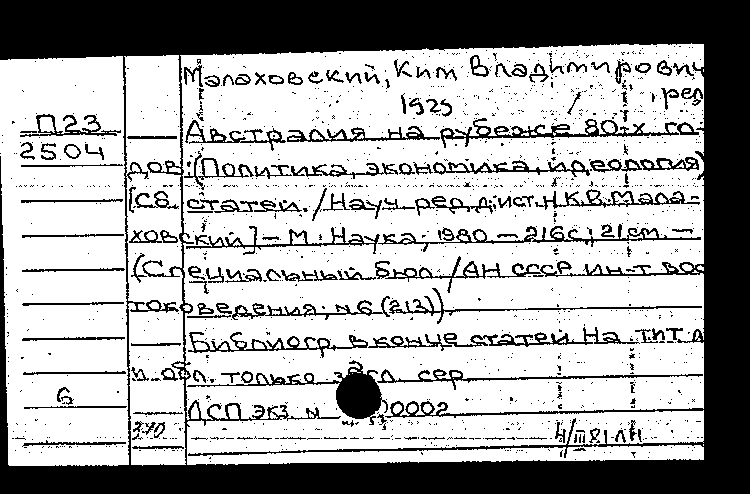 Малаховский, Ким Владимирович
, ред
1925
П23
25.04
Австралия на рубеже 80-х го-
дов: (Политика, экономика, идеология)
[Сб. статей. / Науч. ред. д. ист. н. К.В. Мала-
ховский] - М.: Наука, 1980. - 216с.; 21 см. -
(Специальный бюл. / АН СССР. ин-т вос
токоведения; N 6 (213)).
Библиогр. в конце статей На тит л
и обл. только загл. сер.
6
ДСП экз. N 0002
340
4/III 81 ЛН